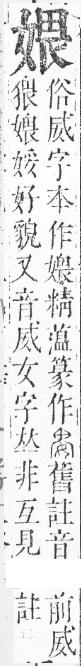 媦
俗威字本作媙精薀篆作𡜦舊註音
猥媙婑好貌又音威女字𠀤非互見
前威
註